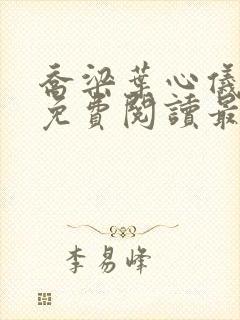 喬梁葉心儀
免費閱讀最
李易峰